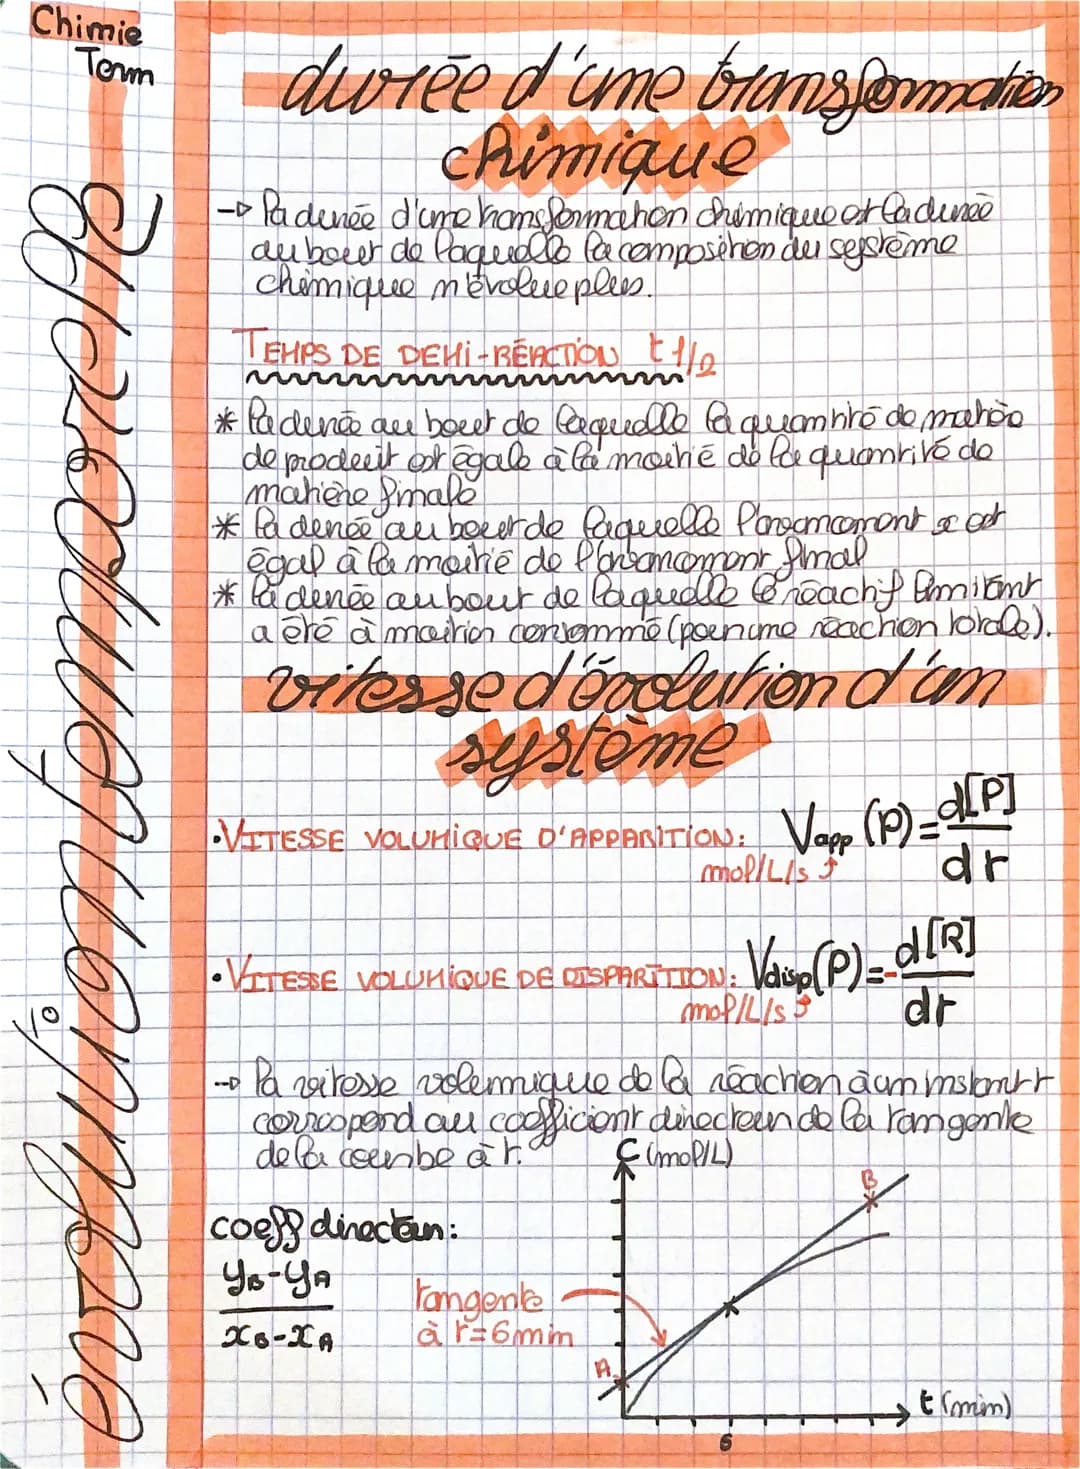 Chimie
Term
évolution temporelle
durée d'une transformation
chimique
→ la durée d'une transformation chimique est la durée
au bout de laquelle la composition du système
chimique n'évolue plus.
TEMPS DE DEMI-RÉACTION t 1/2
* la durée au bout de laquelle la quantité de matière
de produit est égale à la moitié de la quantité de
matière finale
* la durée au bout de laquelle l'avancement x est
égal à la moitié de l'avancement final
* la durée au bout de laquelle le réactif limitant
a été à moitié consommé (pour une réaction totale).
vitesse d'évolution d'un
système
• VITESSE VOLUMIQUE D'APPARITION: Vapp (P) = d[P]
mol/L/s dt
• VITESSE VOLUMIQUE DE DISPARITION: Vdisp(P) = - d[R]
mol/L/s dt
→ la vitesse volumique de la réaction à un instant t
correspond au coefficient directeur de la tangente
de la courbe à t.
C (mol/L)
B
coeff directeur:
yB - yA
xB - xA
tangente
à t=6min
A
t (min)
6